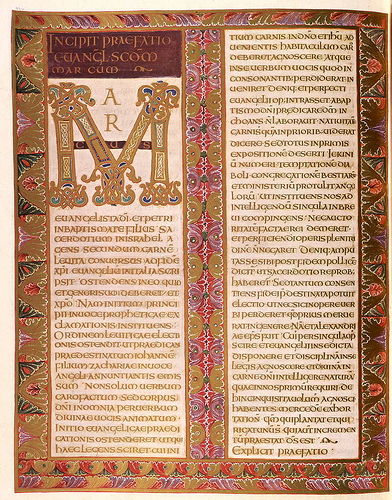 INCIPIT PRAEFATIO
EUANGL SCDM
MARCUM
MAR
EUANGELISTA DI ET PETRI
IN BAPTISMATE FILIUS SA
CERDOTIUM IN ISRAHEL A
GENS SECUNDUM CARNE
LEUITA CONUERSUS AD FIDE
XPI EUANGELIU IN ITALIA SCRI
PSIT OSTENDENS IN EO QUI
ET GENERI SUO DEBERET ET
XPO NAM INITIUM PRINCI
PII IN UOCE PROPHETICAE EX
CLAMATIONIS INSTITUENS
ORDINEM LEUITICAE ELECTI
ONIS OSTENDIT UT PRAEDICANS
PRAEDESTINATUM IOHANNE
FILIUM ZACHARIAE IN UOCE
ANGELI ANNUNTIANTIS EMIS
SUM NON SOLUM UERBUM
CARO FACTUM SED CORPUS
DNI IN OMNIA PER UERBUM
DIUINAE UOCIS ANIMATUM
INITIO EUANGELICAE PRAEDI
CATIONIS OSTENDERET UT QUI
HAEC LEGENS SCIRET CUI INI
TIUM CARNIS IN DNO ET IHU AD
UENIENTIS HABITACULUM CAR
DEBERET AGNOSCERE ATQUE
IN SE UERBUM UOCIS QUOD IN
CONSONANTIBUS PERDIDERAT IN
UENIRET DENIQ ET PERFECTI
EUANGELII OPUS INTRASSET A BAP
TISMO DNI PRAEDICARE DM IN
CHOANS N LABORAUIT NATIUITA
CARNIS QUAM IN PRIORIB UIDERAT
DICERE SED TOTUS IN PRIMIS
EXPOSITIONE DESERTI IEIUNI
U NUMERI TEMPTATIONE DIA
BOLI CONGREGATIONE BESTIARU
ET MINISTERIU PROTULIT ANGE
LORU UT INSTITUENS NOS AD
INTELLEGENDU SINGULA IN BRE
UI COMPINGENS NEC AUCTO
RITATE FACTAE REI DEMERET
ET PERFICIENDI OPERIS PLENITU
DINE NEGARET DENIQ AMPU
TASSE SIBI POST FIDEM POLLICE
DICIT UT SACERDOTIO REPROB
HABERET SED TANTUM CONSEN
TIENS FIDEI PDESTINATA POTUIT
ELECTIO UT NEC SIC IN OPERE UER
BI PERDERET QD PRIUS MERUE
RAT IN GENERE NA ET ALEXANDRI
AE EPS FUIT CUI PER SINGULA OP
SCIRE ET EUANGELII IN SE DICTA
DISPONERE ET DISCIPLINA IN SE
LEGIS AGNOSCERE ET DIUINA IN
CARNE DNI INTELLIGERE NATURA
QUAE IN NOS PRIMU REQUIRI DE
HABENTES MERCEDE EXHOR
TATION QM QUI PLANTAT ET QUI
RIGAT UNU S QUI AUT INCREMEN
TU PRAESTAT DS EST
EXPLICIT PRAEFATIO